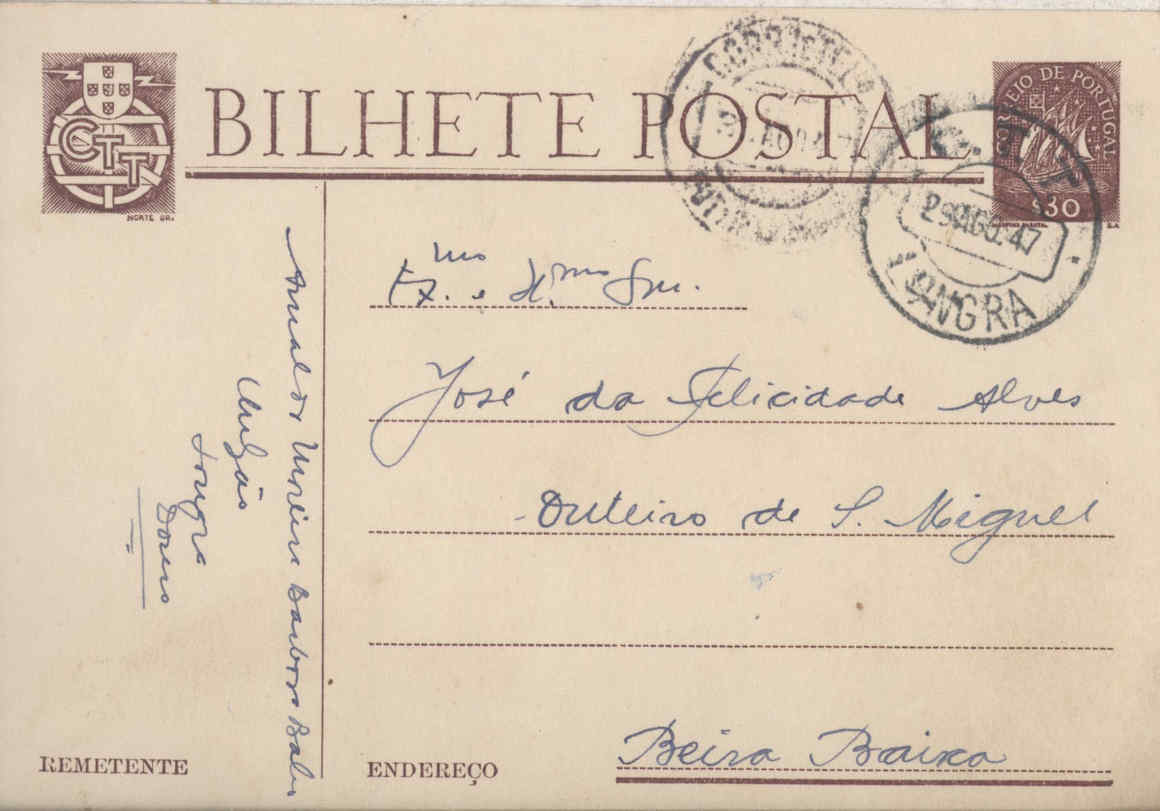 CTT
NORTE GR.
BILHETE POSTAL
CORREIO DE PORTUGAL
$30
29 AGO. 47
LONGRA
Ex.mo e H.mo Snr.
José da Felicidade Alves
Outeiro de S. Miguel
Beira Baixa
Moreira Barbosa
Longra
Douro
REMETENTE
ENDEREÇO